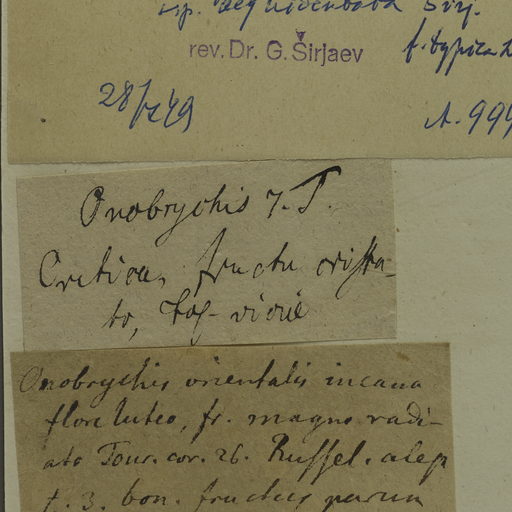 ssp. aequidentata Širj.
rev. Dr. G. Širjaev
f. typica
28/ 49
A. 999
Onobrychis 7. T.
Cretica, fructu crista-
to,
Onobrychis orientalis incana
flore luteo, fr. magno radi-
ato Tour. cor. 26. Russel. alep
t. 3. bon. fructus parum